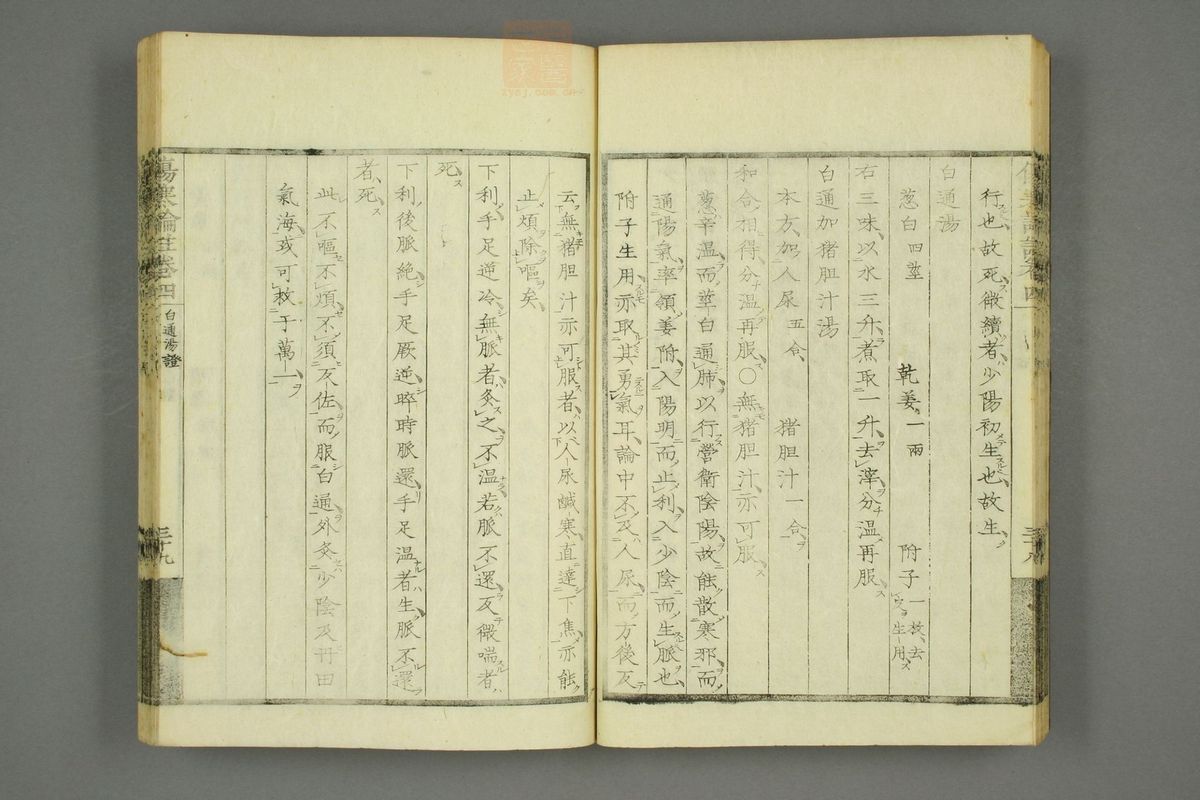 行也故死微續者少陽初生也故生
白通湯
葱白四莖 乾姜一兩 附子一枚去皮生用
右三味以水三升煮取一升去滓分温再服
白通加猪胆汁湯
本方加人尿五合 猪胆汁一合
和合相得分温再服○無猪胆汁亦可服
葱辛温而莖白通肺以行營衛陰陽故能散寒邪而
通陽氣率領姜附入陽明而止利入少陰而生脈也
附子生用亦取其勇氣耳論中不及人尿而方後反
云無猪胆汁亦可服者以人尿鹹寒直達下焦亦能
止煩除嘔矣
下利手足逆冷無脈者灸之不温若脈不還反微喘者
死
下利後脈絶手足厥逆晬時脈還手足温者生脈不還
者死
此不嘔不煩不須反佐而服白通外灸少陰及丹田
氣海或可救于萬一
傷寒論註卷四
白通湯證
三十九
三十八
zysj.com.cn